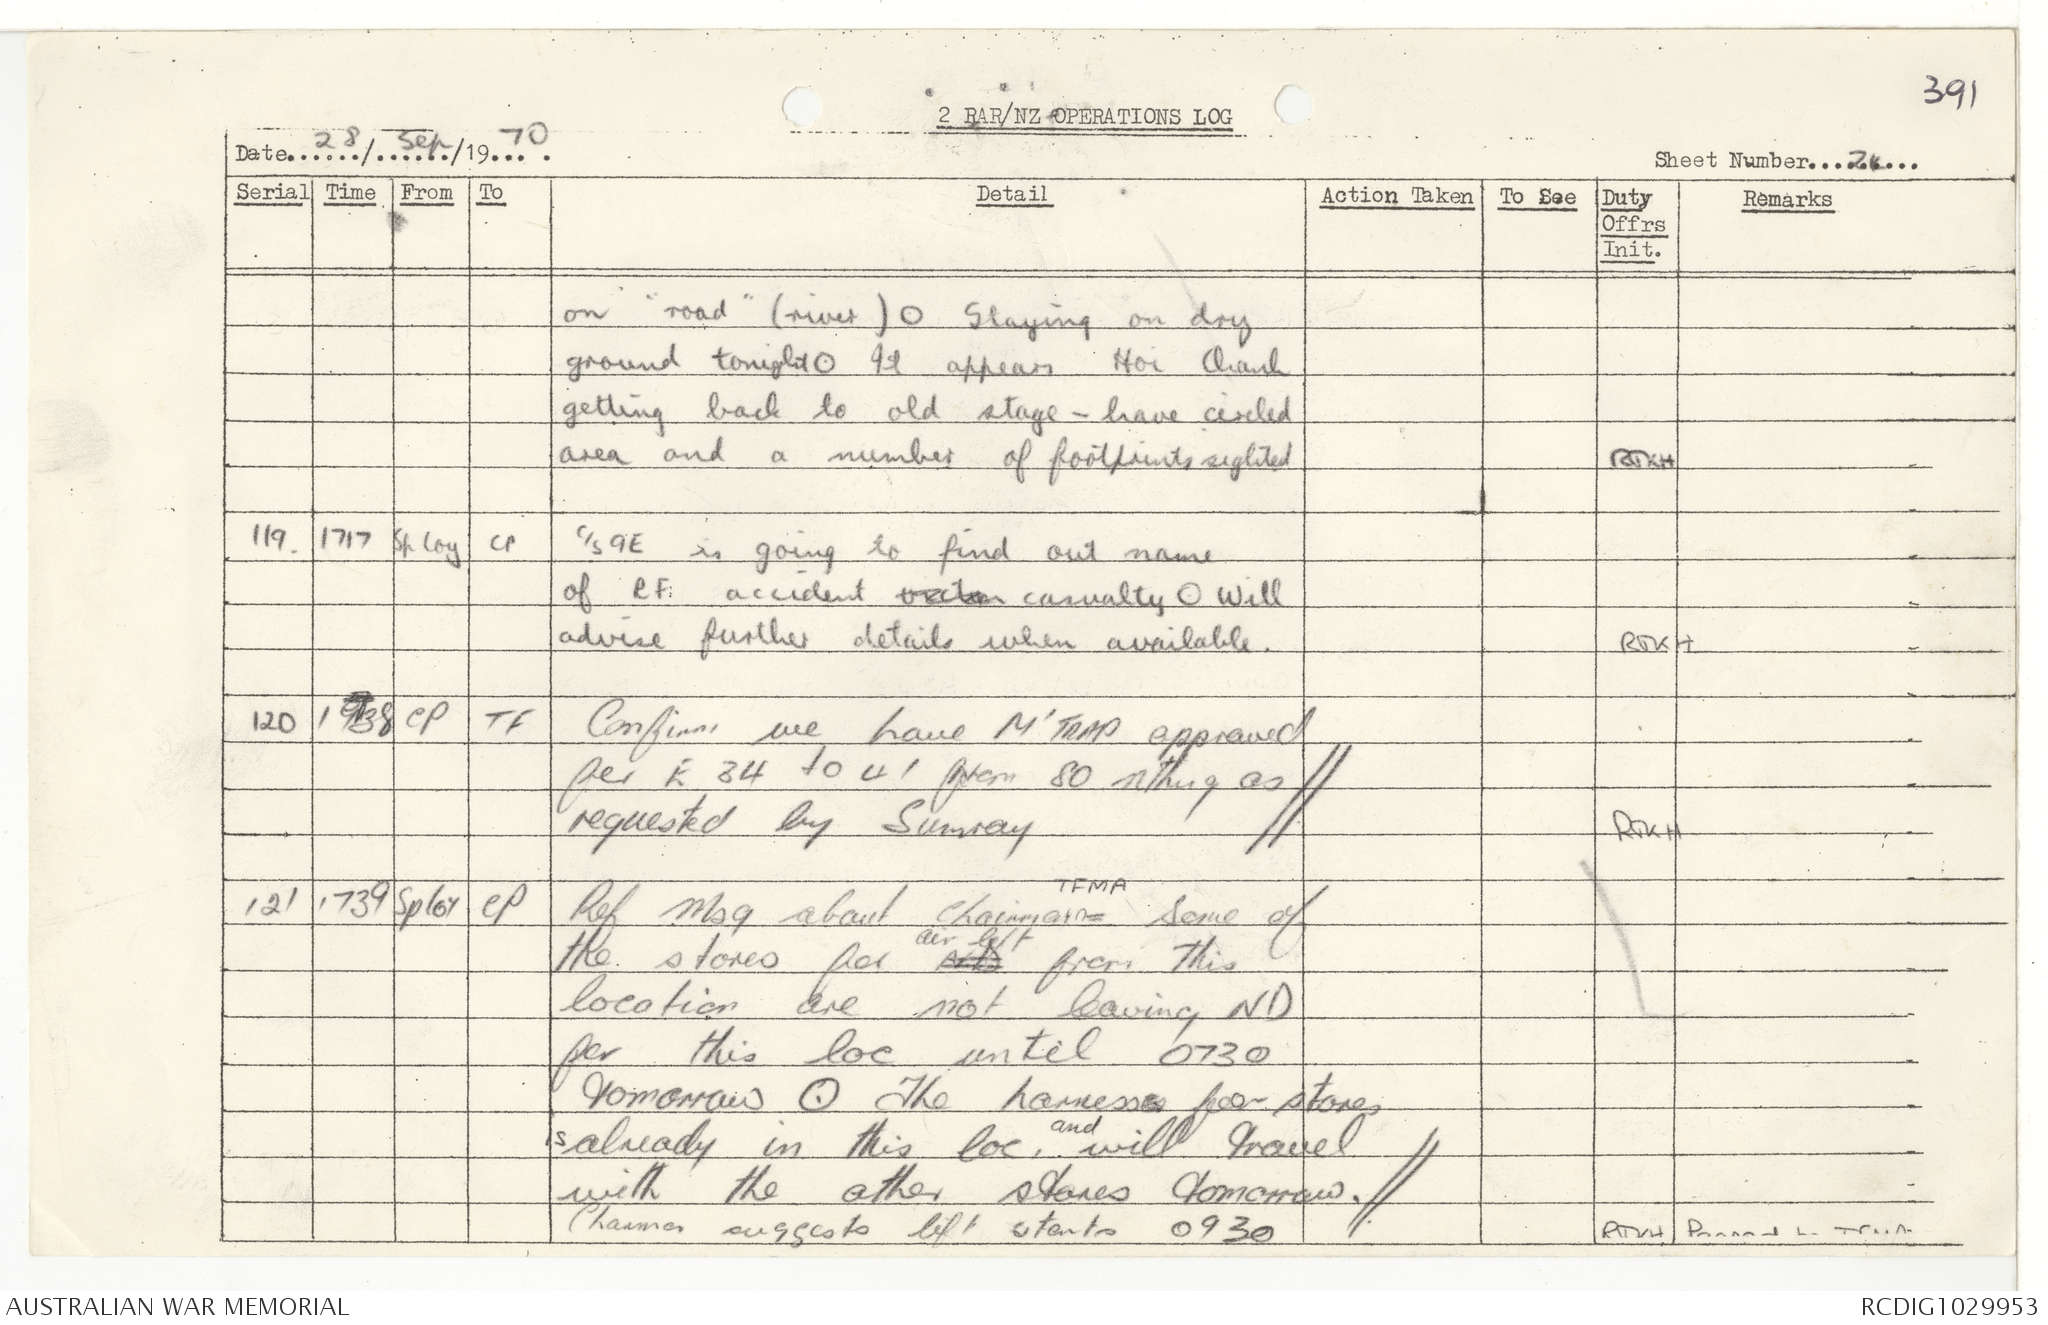 391
2 RAR/NZ OPERATIONS LOG
Date 28/Sep/1970
Sheet Number
Serial Time From To Detail Action Taken To See Duty Offrs Init. Remarks
on "road" (river) O Staying on dry
ground tonight O It appears Hoi Chanh
getting back to old stage - have circled
area and a number of footprints sighted RTKH
119. 1717 Sp Coy CP C/S 9E is going to find out name
of RF accident casualty O Will
advise further details when available. RTKH
120 1738 CP TF Confirm we have M'TRAP approved
for E 34 to 41 from 80 nthng as
requested by Sunray // RTKH
121 1739 Sp Coy CP Ref Msg about Chairman TFMA Some of
the stores for air lift from this
location are not leaving ND
for this loc until 0730
Tomorrow O The harness for stores
is already in this loc. and will travel
with the other stores tomorrow. //
Charman suggests lift starts 0930 RTKH Passed to TFMA
AUSTRALIAN WAR MEMORIAL
RCDIG1029953